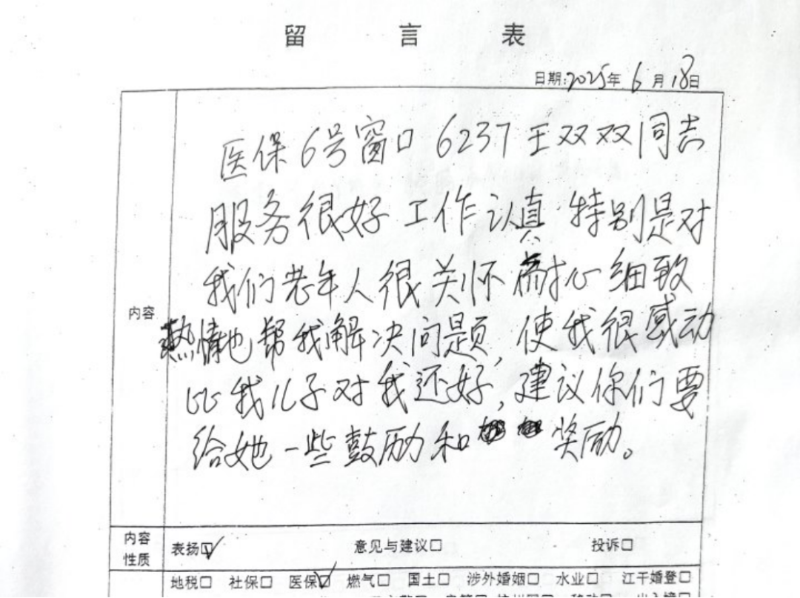 留言表
日期:2025年6月18日
内容
医保6号窗口 6237 王双双同志
服务很好 工作认真 特别是对
我们老年人很关怀 耐心细致
热情地帮我解决问题,使我很感动
比我儿子对我还好,建议你们要
给她一些鼓励和 奖励。
内容性质 表扬☑ 意见与建议□ 投诉□
地税□ 社保□ 医保☑ 燃气□ 国土□ 涉外婚姻□ 水业□ 江干婚登□